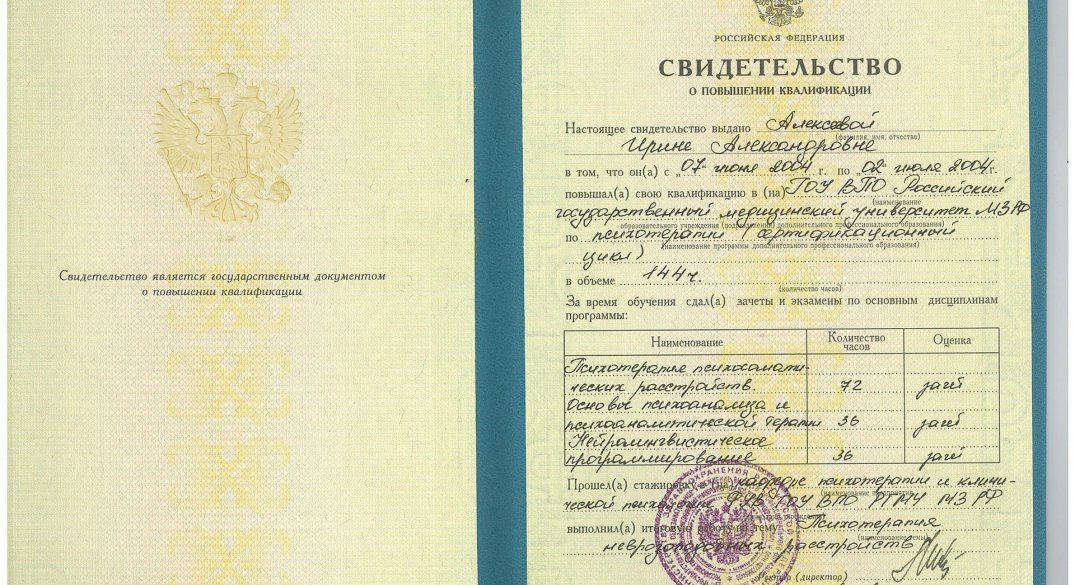 Свидетельство является государственным документом
о повышении квалификации
РОССИЙСКАЯ ФЕДЕРАЦИЯ
СВИДЕТЕЛЬСТВО
О ПОВЫШЕНИИ КВАЛИФИКАЦИИ
Настоящее свидетельство выдано Алексеевой
(фамилия, имя, отчество)
Ирине Александровне
в том, что он(а) с „07" июня 2004 г. по „02" июля 2004 г.
повышал(а) свою квалификацию в (на) ГОУ ВПО Российский
(наименование
государственный медицинский университет МЗ РФ
образовательного учреждения (подразделения) дополнительного профессионального образования)
по психотерапии (сертификационный
(наименование программы дополнительного профессионального образования)
цикл)
в объеме 144 ч.
(количество часов)
За время обучения сдал(а) зачеты и экзамены по основным дисциплинам
программы:
Наименование Количество часов Оценка
Психотерапия психосомати-
ческих расстройств. 72 зачет
Основы психоанализа и
психоаналитической терапии 36 зачет
Нейролингвистическое
программирование 36 зачет
Прошел(а) стажировку в (на) кафедре психотерапии и клини-
(наименование предприятия,
ческой психологии ФУВ ГОУ ВПО РГМУ МЗ РФ
выполнил(а) итоговую работу на тему Психотерапия
(наименование темы)
неврозоподобных расстройств
Ректор (директор)